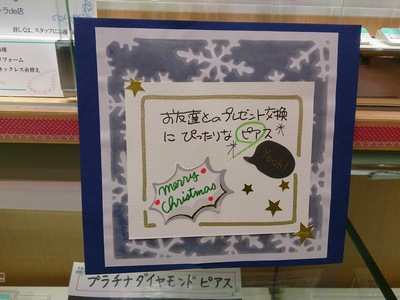 ーラde店
詳しくは、スタッフに
リフォーム
ネックレス糸替え
お友達との プレゼント交換
に ぴったりな ピアス
Yeah!
merry
christmas
プラチナダイヤモンド ピアス